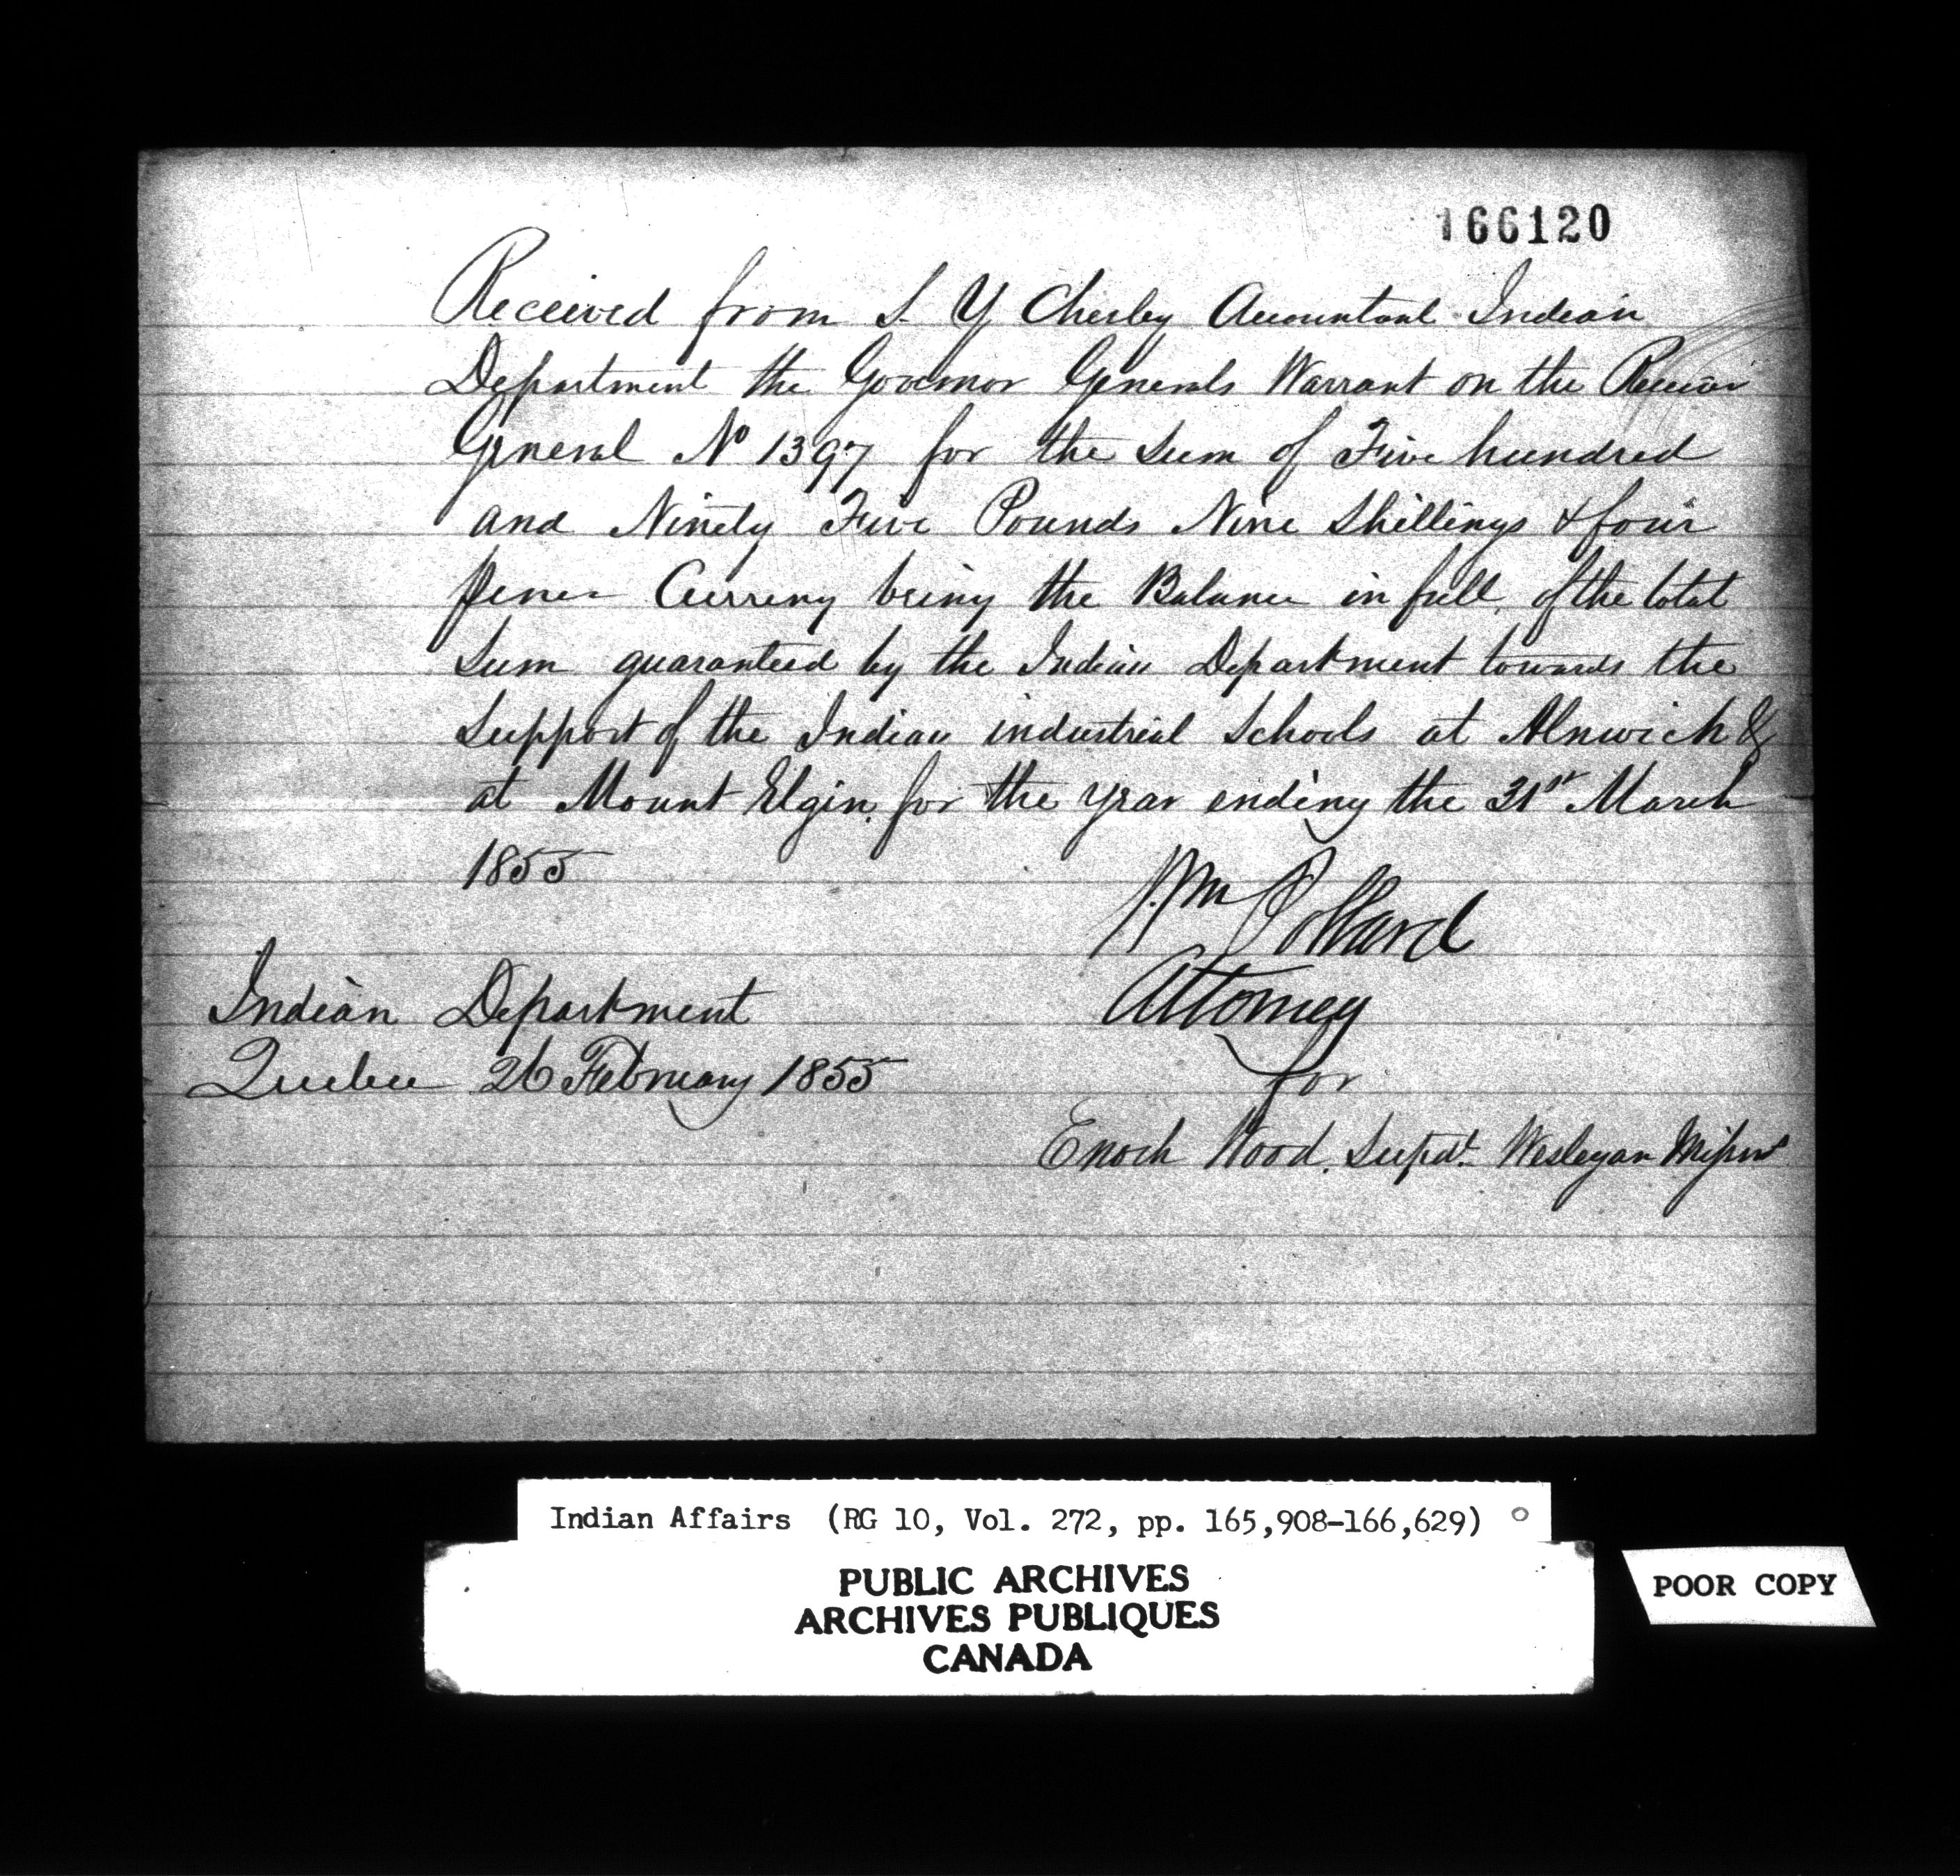 166120
Received from S. Y Chesley Accountant Indian
Department the Governor Generals Warrant on the Receiver
General No 1397 for the Sum of Five hundred
and Ninety Five Pounds Nine Shillings & four
pence Currency being the Balance in full of the total
Sum guaranteed by the Indian Department towards the
Support of the Indian industrial Schools at Alnwick &
at Mount Elgin for the year ending the 31st March
1855
Wm Pollard
Attorney
for
Enoch Wood. Supdt. Wesleyan Missns
Indian Department
Quebec 26 February 1855
Indian Affairs (RG 10, Vol. 272, pp. 165,908-166,629)
PUBLIC ARCHIVES
ARCHIVES PUBLIQUES
CANADA
POOR COPY